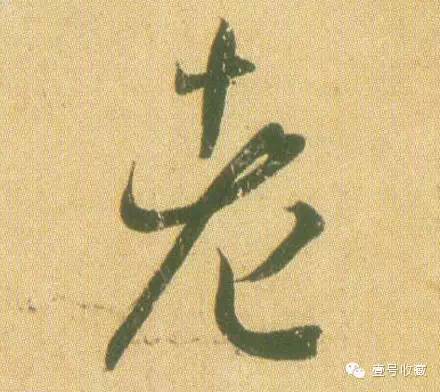 老
壹号收藏